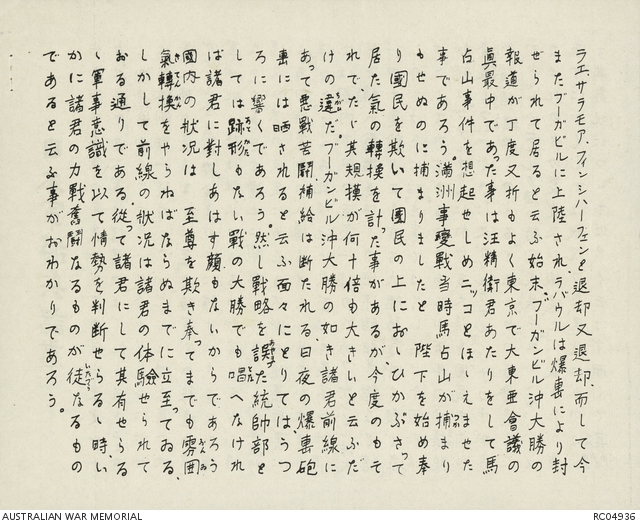 ラエ、サラモア、フィンシハーフェンと退却又退却、而して今
またブーガビルに上陸され、ラバウルは爆撃により封
ぜられて居ると云ふ始末、ブーガンビル沖大勝の
報道が丁度又折もよく東京で大東亜會議の
眞最中であった事は汪精衛君あたりをして馬
占山事件を想起せしめニッコとほゝえませた
事であろう。満洲事變戦当時馬占山が捕まり
もせぬのに捕まりましたと 陛下を始め奉
り國民を欺いて國民の上におゝひかぶさって
居た氣の轉換を計った事があるが、今度のもそ
れでたゞ其規模が何十倍も大きいと云ふだ
けの違だ。ブーガンビル沖大勝の如き諸君前線に
あって悪戦苦闘補給は断たれる、日夜の爆撃砲
撃には晒されると云ふ面々にとりてはうつ
ろに響くであろう。然し戦略を誤た統帥部と
しては跡形もない戦の大勝でも唱へなけれ
ば諸君に對しあはす顔もないからであろう
國内の狀況は 至尊を欺き奉ってまでも雰囲
氣轉換をやらねばならぬまでに立至ってゐる、
しかして前線の狀況は諸君の体験せられて
おる通りである、従って諸君にして其有せらる
ゝ軍事意識を以て情勢を判断せらるゝ時い
かに諸君の力戦奮闘なるものが徒なるもの
であると云ふ事がおわかりであろう。
AUSTRALIAN WAR MEMORIAL
RC04936